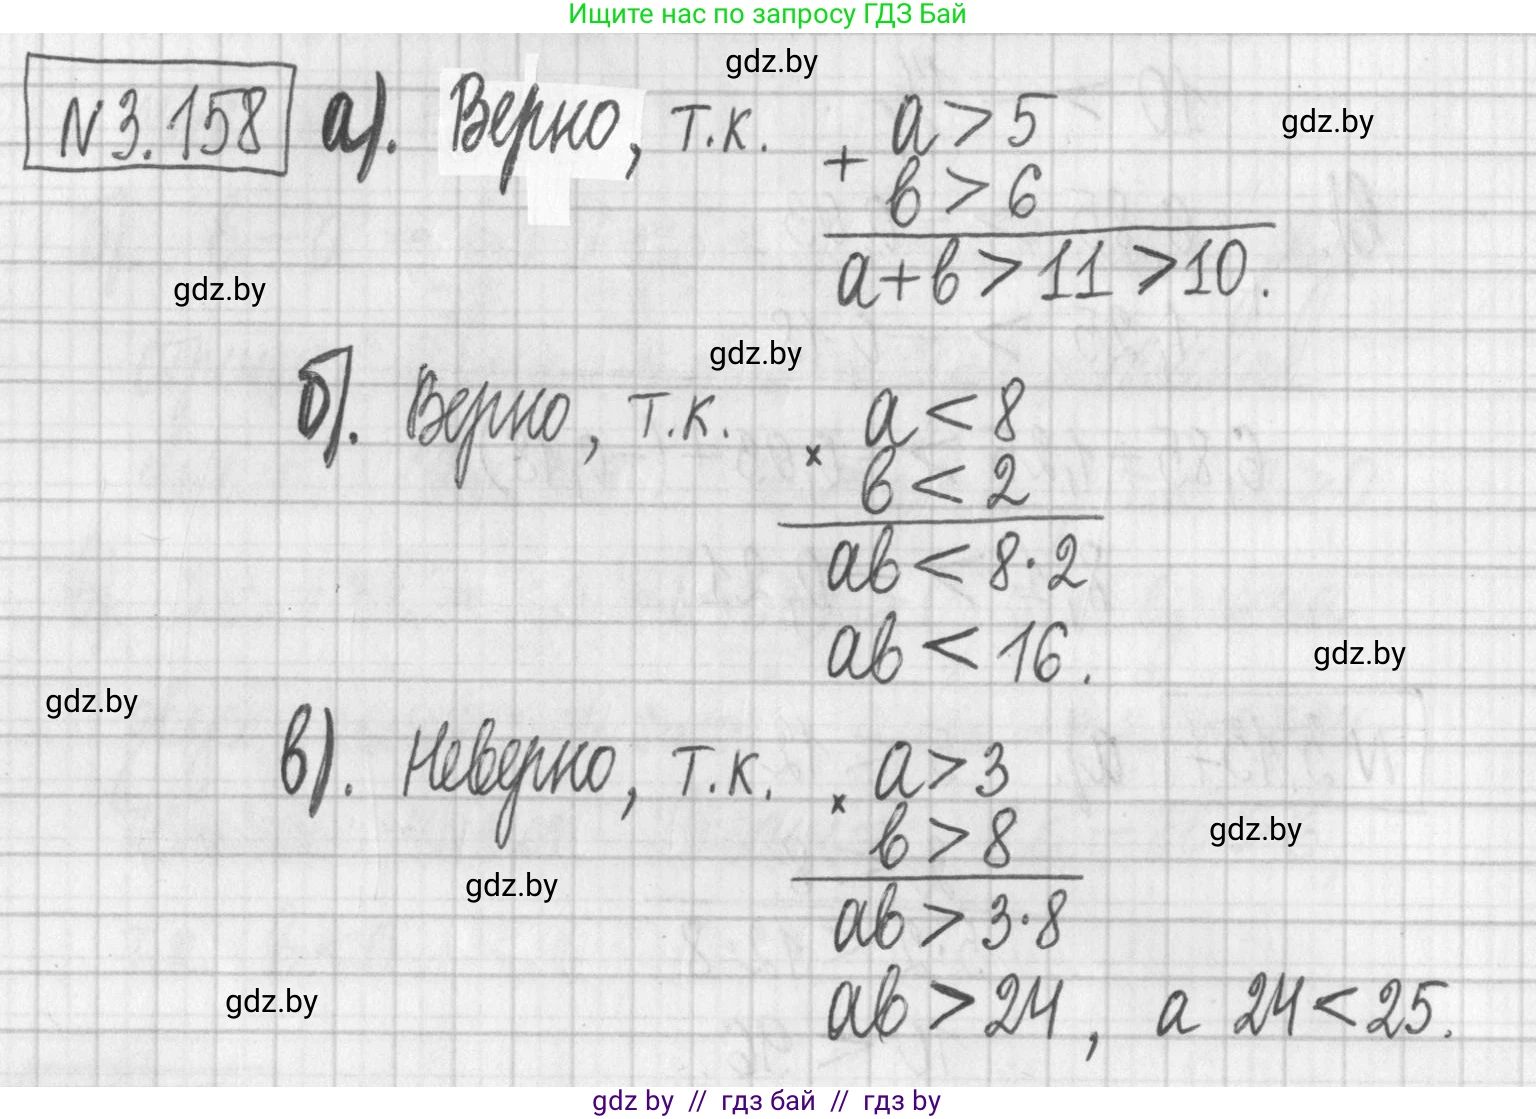 Ищите нас по запросу ГДЗ Бай
gdz.by
N 3.158 а). Верно, т.к. + a > 5
gdz.by
b > 6
a+b > 11 > 10.
gdz.by
gdz.by
б). Верно, т.к. × a < 8
b < 2
ab < 8·2
ab < 16.
gdz.by
gdz.by
в). Неверно, т.к. × a > 3
b > 8
gdz.by
gdz.by
ab > 3·8
ab > 24, а 24 < 25.
gdz.by
gdz by // гдз бай // гдз by